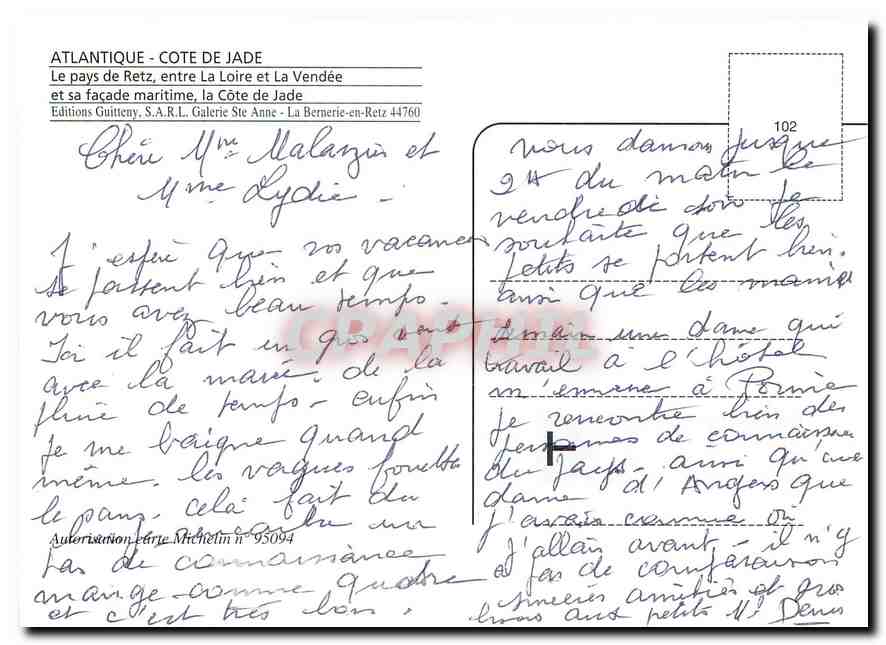 ATLANTIQUE - COTE DE JADE
Le pays de Retz, entre La Loire et La Vendée
et sa façade maritime, la Côte de Jade
Editions Guitteny, S.A.R.L. Galerie Ste Anne - La Bernerie-en-Retz 44760
Chère Mme et
Mme Lydie -
J'espère que vos vacances
se passent bien et que
vous avez beau temps -
Ici il fait un gros vent
avec la marée, de la
pluie de temps - enfin
je me baigne quand
même. les vagues
le celà fait du
un
Autorisation carte Michelin n° 95094
de connaissance
mange comme quatre
et c'est très bon.
102
nous dansons jusque
2H du matin le
vendredi soir je
souhaite que les
petits se portent bien.
ainsi que les
demain une dame qui
travail à l'hôtel
m'emmène à Pornic
je rencontre bien des
personnes de connaissance
du pays - ainsi qu'une
dame d'Angers que
j'avais connue où
j'allais avant - il n'y
a pas de comparaison
sincères amitiés et gros
bisous aux petits Denis
CPAPHIL